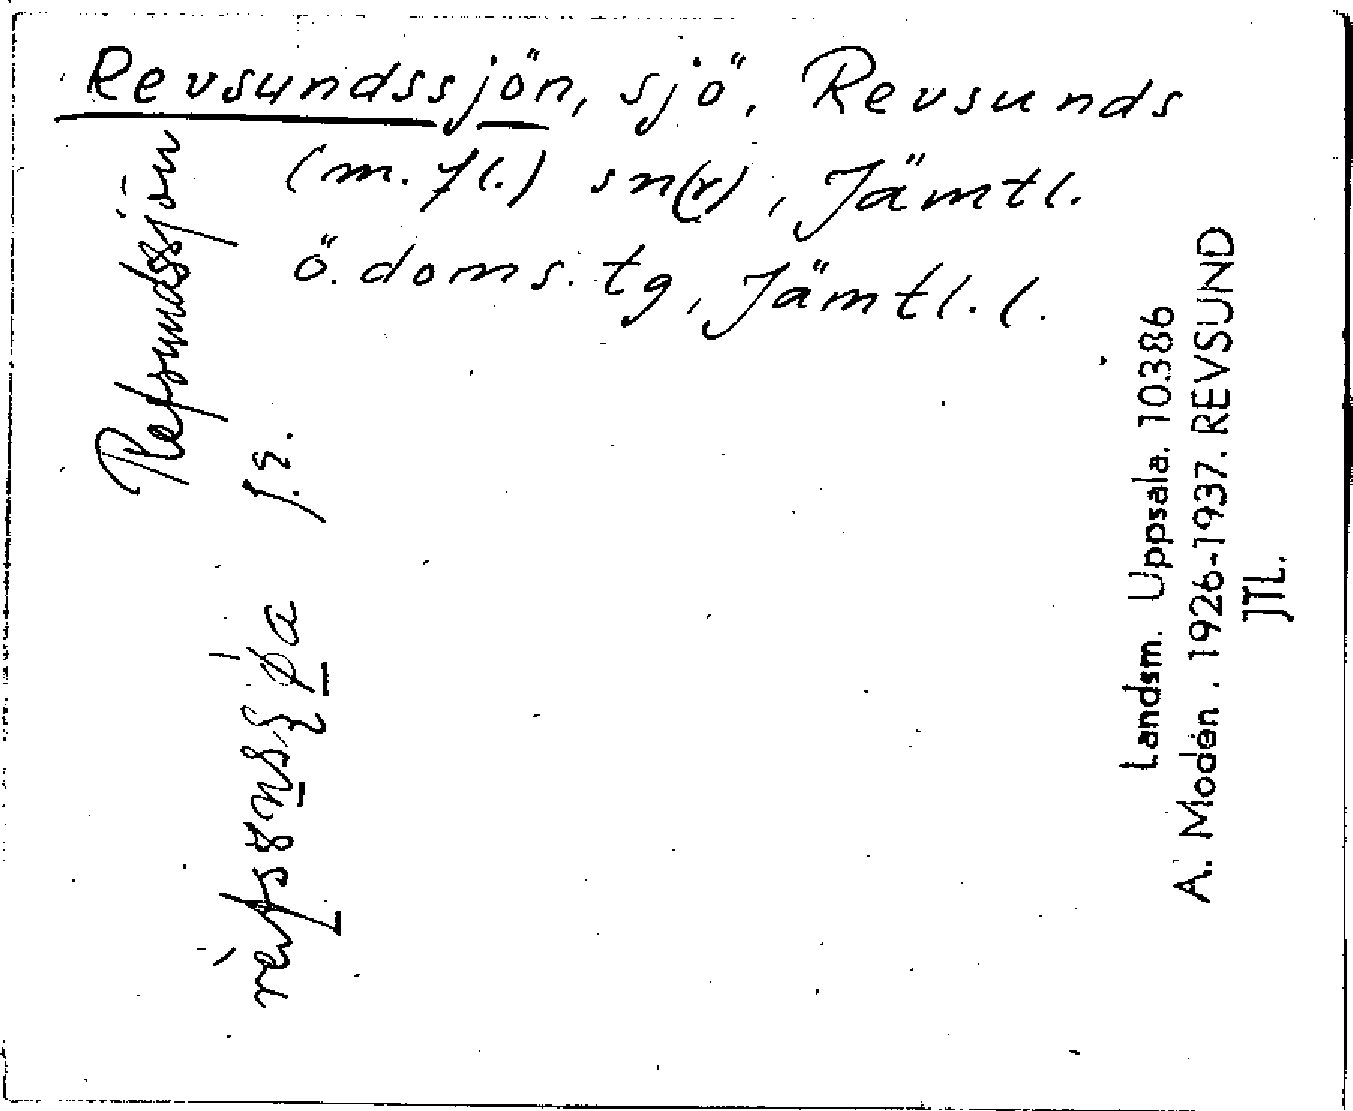 Revsundssjön, sjö, Revsunds
(m. fl.) sn(r), Jämtl.
ö. doms. tg, Jämtl. l.
Refsundssjön
f. q.
Landsm. Uppsala. 10386
A. Modén. 1926-1937. REVSUND
JTL.